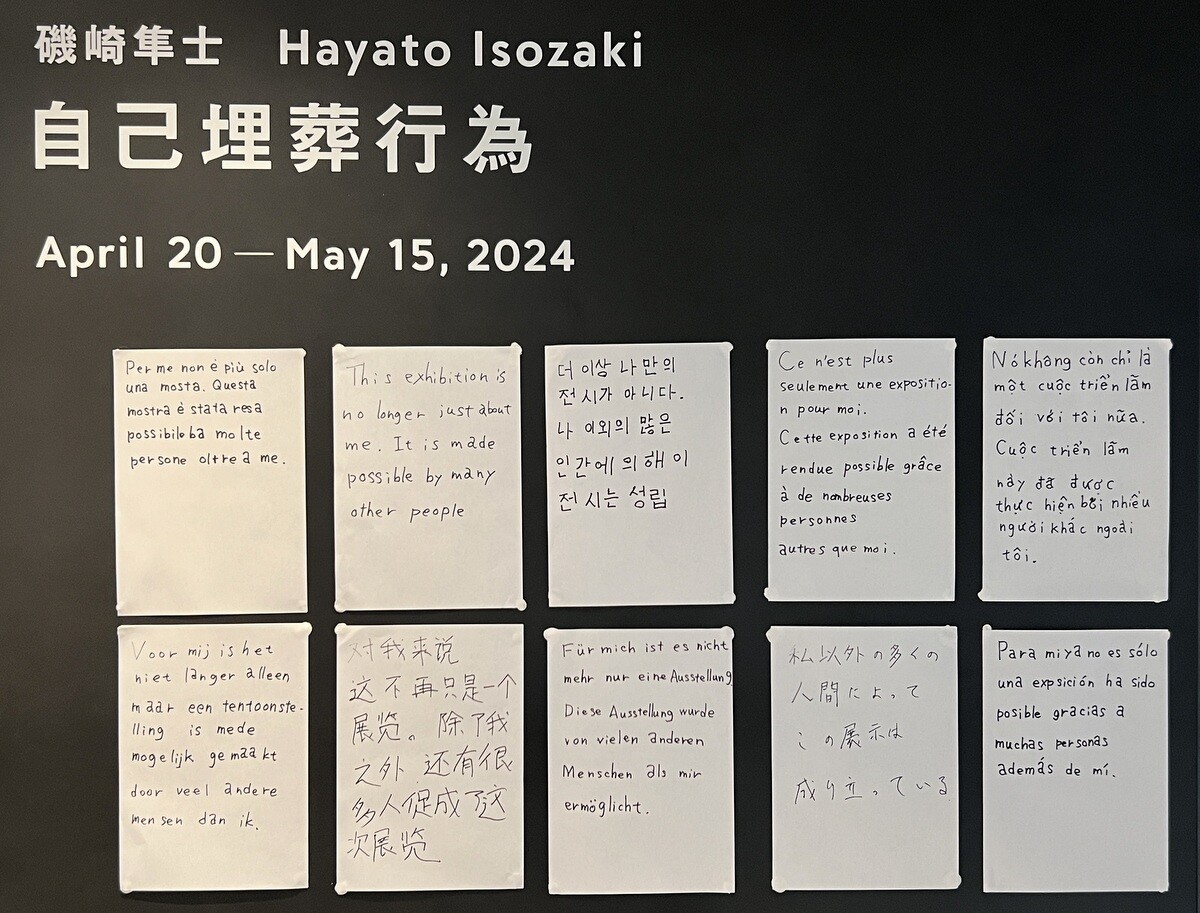 磯崎隼士 Hayato Isozaki
自己埋葬行為
April 20 — May 15, 2024
Per me non è più solo
una mosta. Questa
mostra è stata resa
possibile ba molte
persone oltre a me.
This exhibition is
no longer just about
me. It is made
possible by many
other people
더 이상 나 만의
전시가 아니다.
나 이외의 많은
인간에 의해 이
전시는 성립
Ce n'est plus
seulement une expositio-
n pour moi.
Cette exposition a été
rendue possible grâce
à de nombreuses
personnes
autres que moi.
Nó không còn chỉ là
một cuộc triển lãm
đối với tôi nữa.
Cuộc triển lãm
này đã được
thực hiện bởi nhiều
người khác ngoài
tôi.
Voor mij is het
niet langer alleen
maar een tentoonste-
lling is mede
mogelijk gemaakt
door veel andere
mensen dan ik.
对我来说
这不再只是一个
展览。除了我
之外 还有很
多人促成了这
次展览
Für mich ist es nicht
mehr nur eine Ausstellung
Diese Ausstellung wurde
von vielen anderen
Menschen als mir
ermöglicht.
私以外の多くの
人間によって
この展示は
成り立っている
Para mi ya no es sólo
una expsición ha sido
posible gracias a
muchas personas
además de mí.